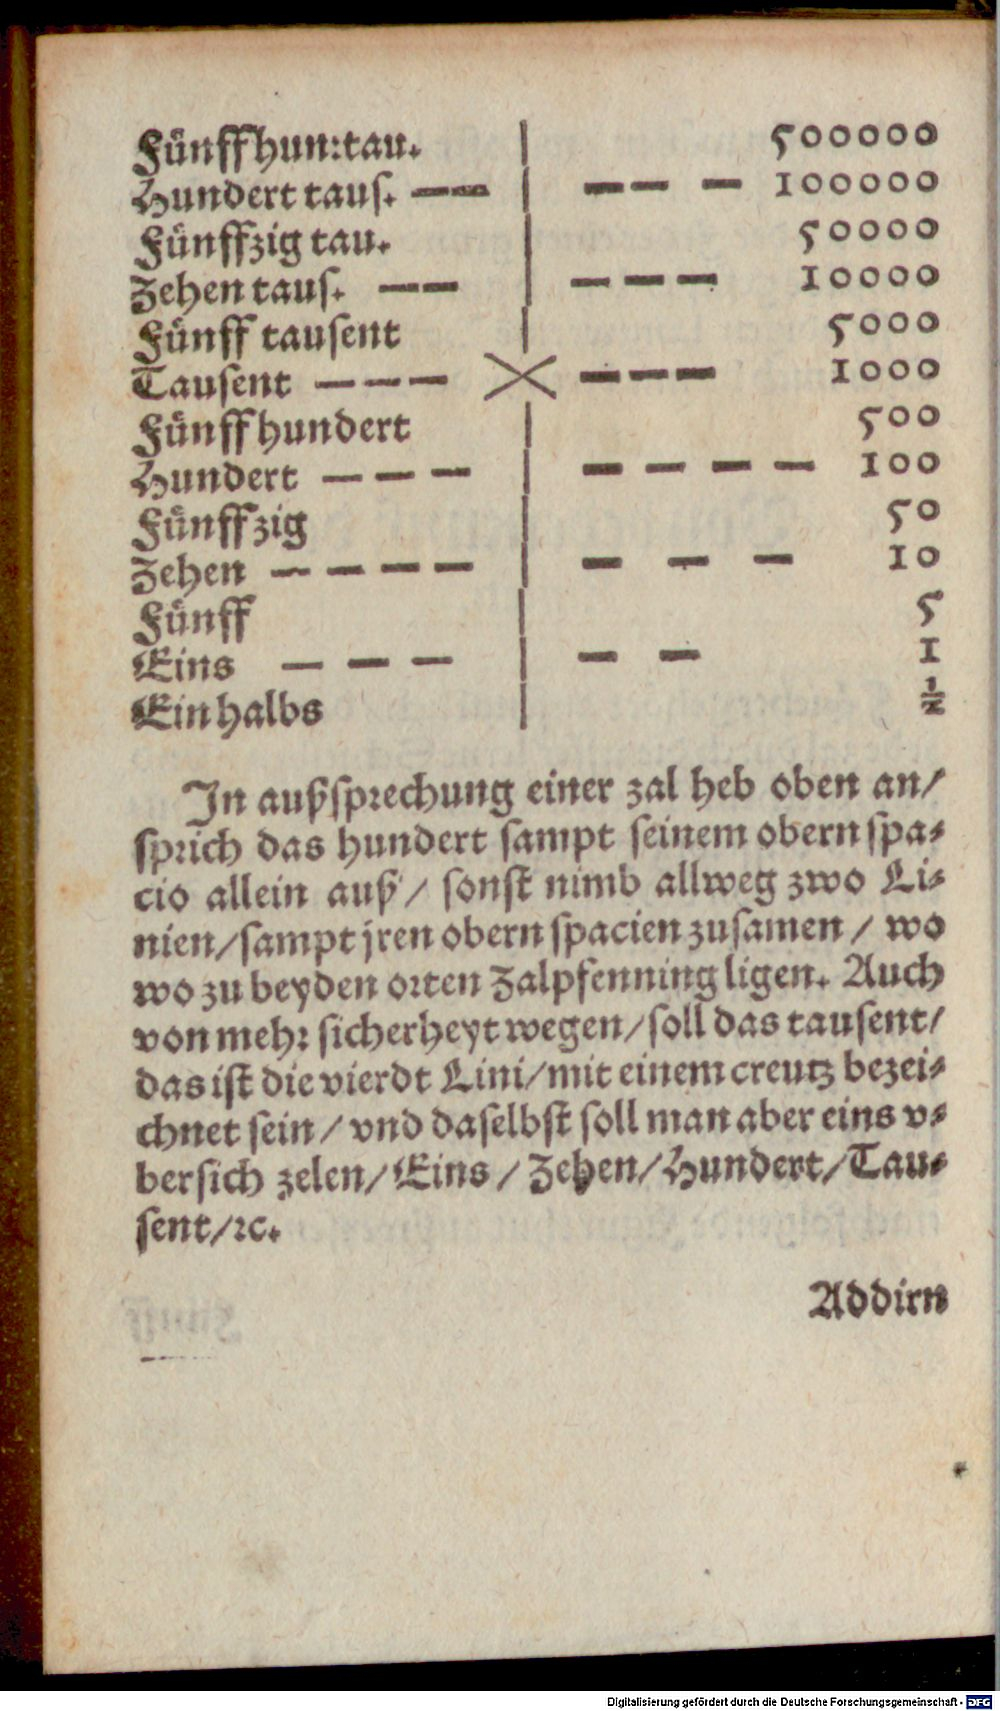 Fünff hun:tau. | 500000
Hundert taus. —— | —— — 100000
Fünffzig tau. | 50000
Zehen taus. —— | — — — 10000
Fünff tausent | 5000
Tausent — — — X — — — 1000
Fünff hundert | 500
Hundert — — — | — — — — 100
Fünffzig | 50
Zehen — — — — | — — — 10
Fünff | 5
Eins — — — | — — 1
Ein halbs | ½
In außsprechung einer zal heb oben an/
sprich das hundert sampt seinem obern spa⸗
cio allein auß / sonst nimb allweg zwo Li⸗
nien/sampt jren obern spacien zusamen / wo
wo zu beyden orten Zalpfenning ligen. Auch
von mehr sicherheyt wegen/soll das tausent/
das ist die vierdt Lini/mit einem creutz bezei⸗
chnet sein / vnd daselbst soll man aber eins v⸗
bersich zelen/Eins / Zehen/Hundert/Tau⸗
sent/ꝛc.
Addirn
Digitalisierung gefördert durch die Deutsche Forschungsgemeinschaft - DFG